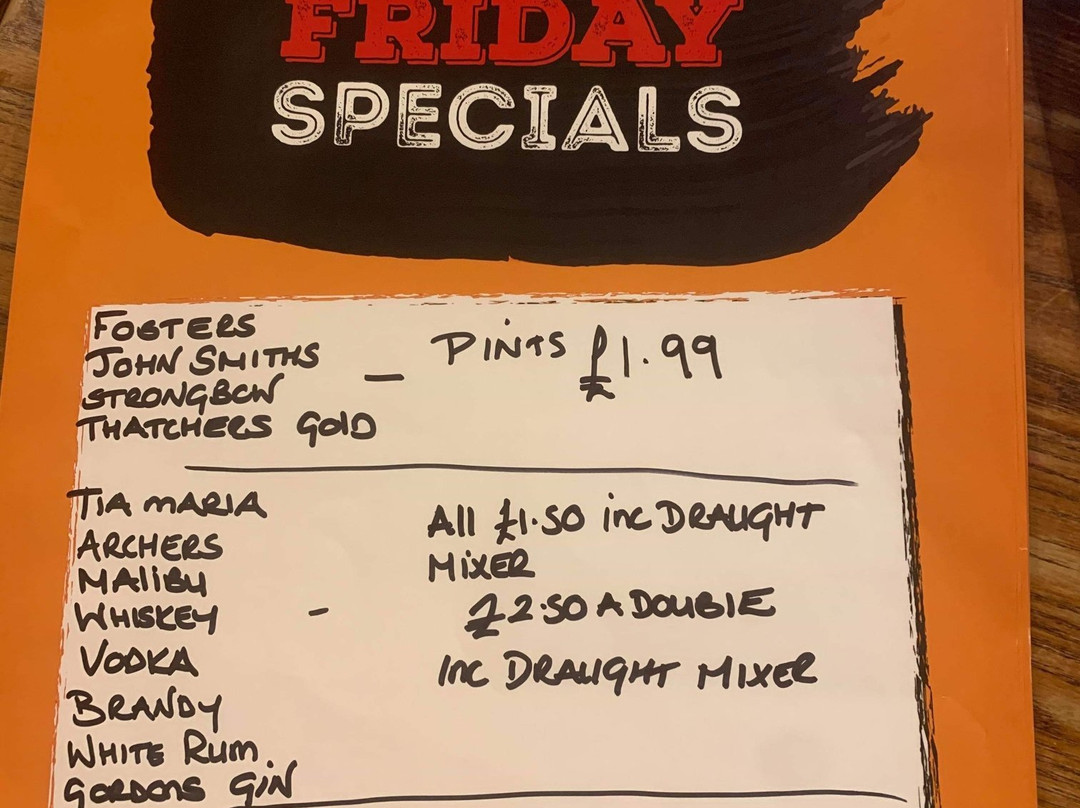 FRIDAY
SPECIALS
FOSTERS
JOHN SMITHS
STRONGBOW
THATCHERS GOLD
– PINTS £1.99
TIA MARIA
ARCHERS
MALIBU
WHISKEY
VODKA
BRANDY
WHITE RUM
GORDONS GIN
– All £1.50 inc DRAUGHT
MIXER
£2.50 A DOUBLE
inc DRAUGHT MIXER